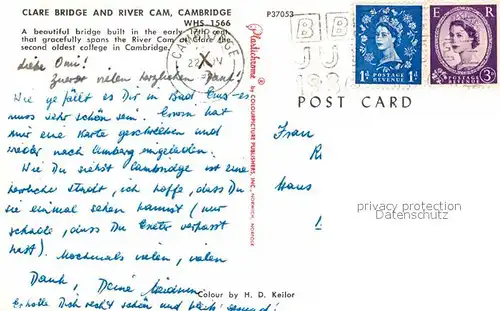 CLARE BRIDGE AND RIVER CAM, CAMBRIDGE
WHS 1566
A beautiful bridge built in the early 17th cent
that gracefully spans the River Cam at Clare the
second oldest college in Cambridge.
P37053
E R
POSTAGE REVENUE
1D 1D
POSTAGE REVENUE
3D
POST CARD
Liebe Omi!
Zuerst vielen herzlichen Dank!
Wie gefällt es Dir in Bad Ems - es
muss sehr schön sein. Erwin hat
mir eine Karte geschrieben und
wieder nach Amberg eingeladen.
Wie Du siehst Cambridge ist eine
herrliche Stadt, ich hoffe, dass Du
sie einmal sehen kannst (nur
schade, dass Du Exeter verpasst
hast). Nochmals vielen, vielen
Dank, Deine
Erholte Dich recht schön und bleib' gesund!
Frau
R
Haus
Plastichrome ® by COLOURPICTURE PUBLISHERS, INC. NORWICH, NORFOLK
Privacy protected
Datenschutz
Colour by H. D. Keilor